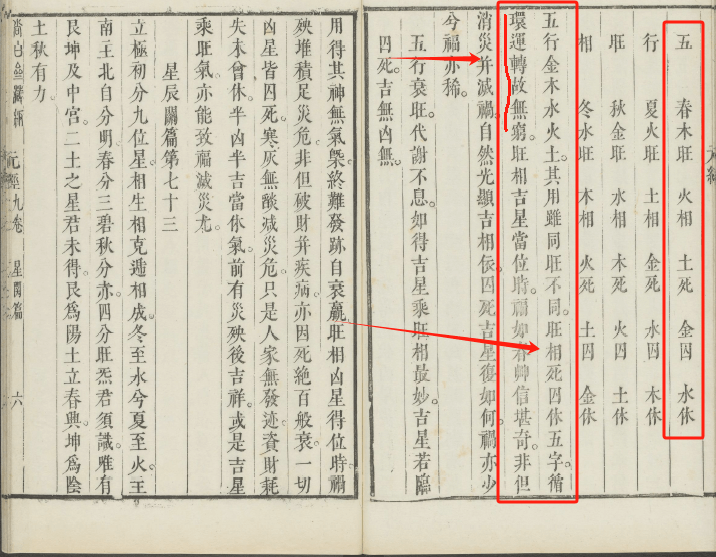 五　春木旺　火相　土死　金囚　水休
行　夏火旺　土相　金死　水囚　木休
旺　秋金旺　水相　木死　火囚　土休
相　冬水旺　木相　火死　土囚　金休
五行金木水火土其用雖同旺不同旺相死囚休五字循
環運轉故無窮旺相吉星當位時福如春艸信堪奇非但
消災并滅禍自然光顯吉相依囚死吉星復如何禍亦少
兮福亦稀
五行衰旺代謝不息如得吉星乘旺相最妙吉星若臨
囚死吉無凶無
用得其神無氣槩終難發跡自衰羸旺相凶星得位時禍
殃堆積足災危非但破財幷疾病亦因死絕百般衰一切
凶星皆囚死寒灰無酸減災危只是人家無發迹資財耗
失本曾休半凶半吉當休氣前有災殃後吉祥或是吉星
乘旺氣亦能致福滅災尤
星辰關篇第七十三
立極初分九位星相生相克遞相成冬至水兮夏至火王
南王北自分明春分三碧秋分赤四分旺炁君須識唯有
艮坤及中宮二土之星君未得艮爲陽土立春興坤爲陰
土秋有力
元經九卷　星關篇　六